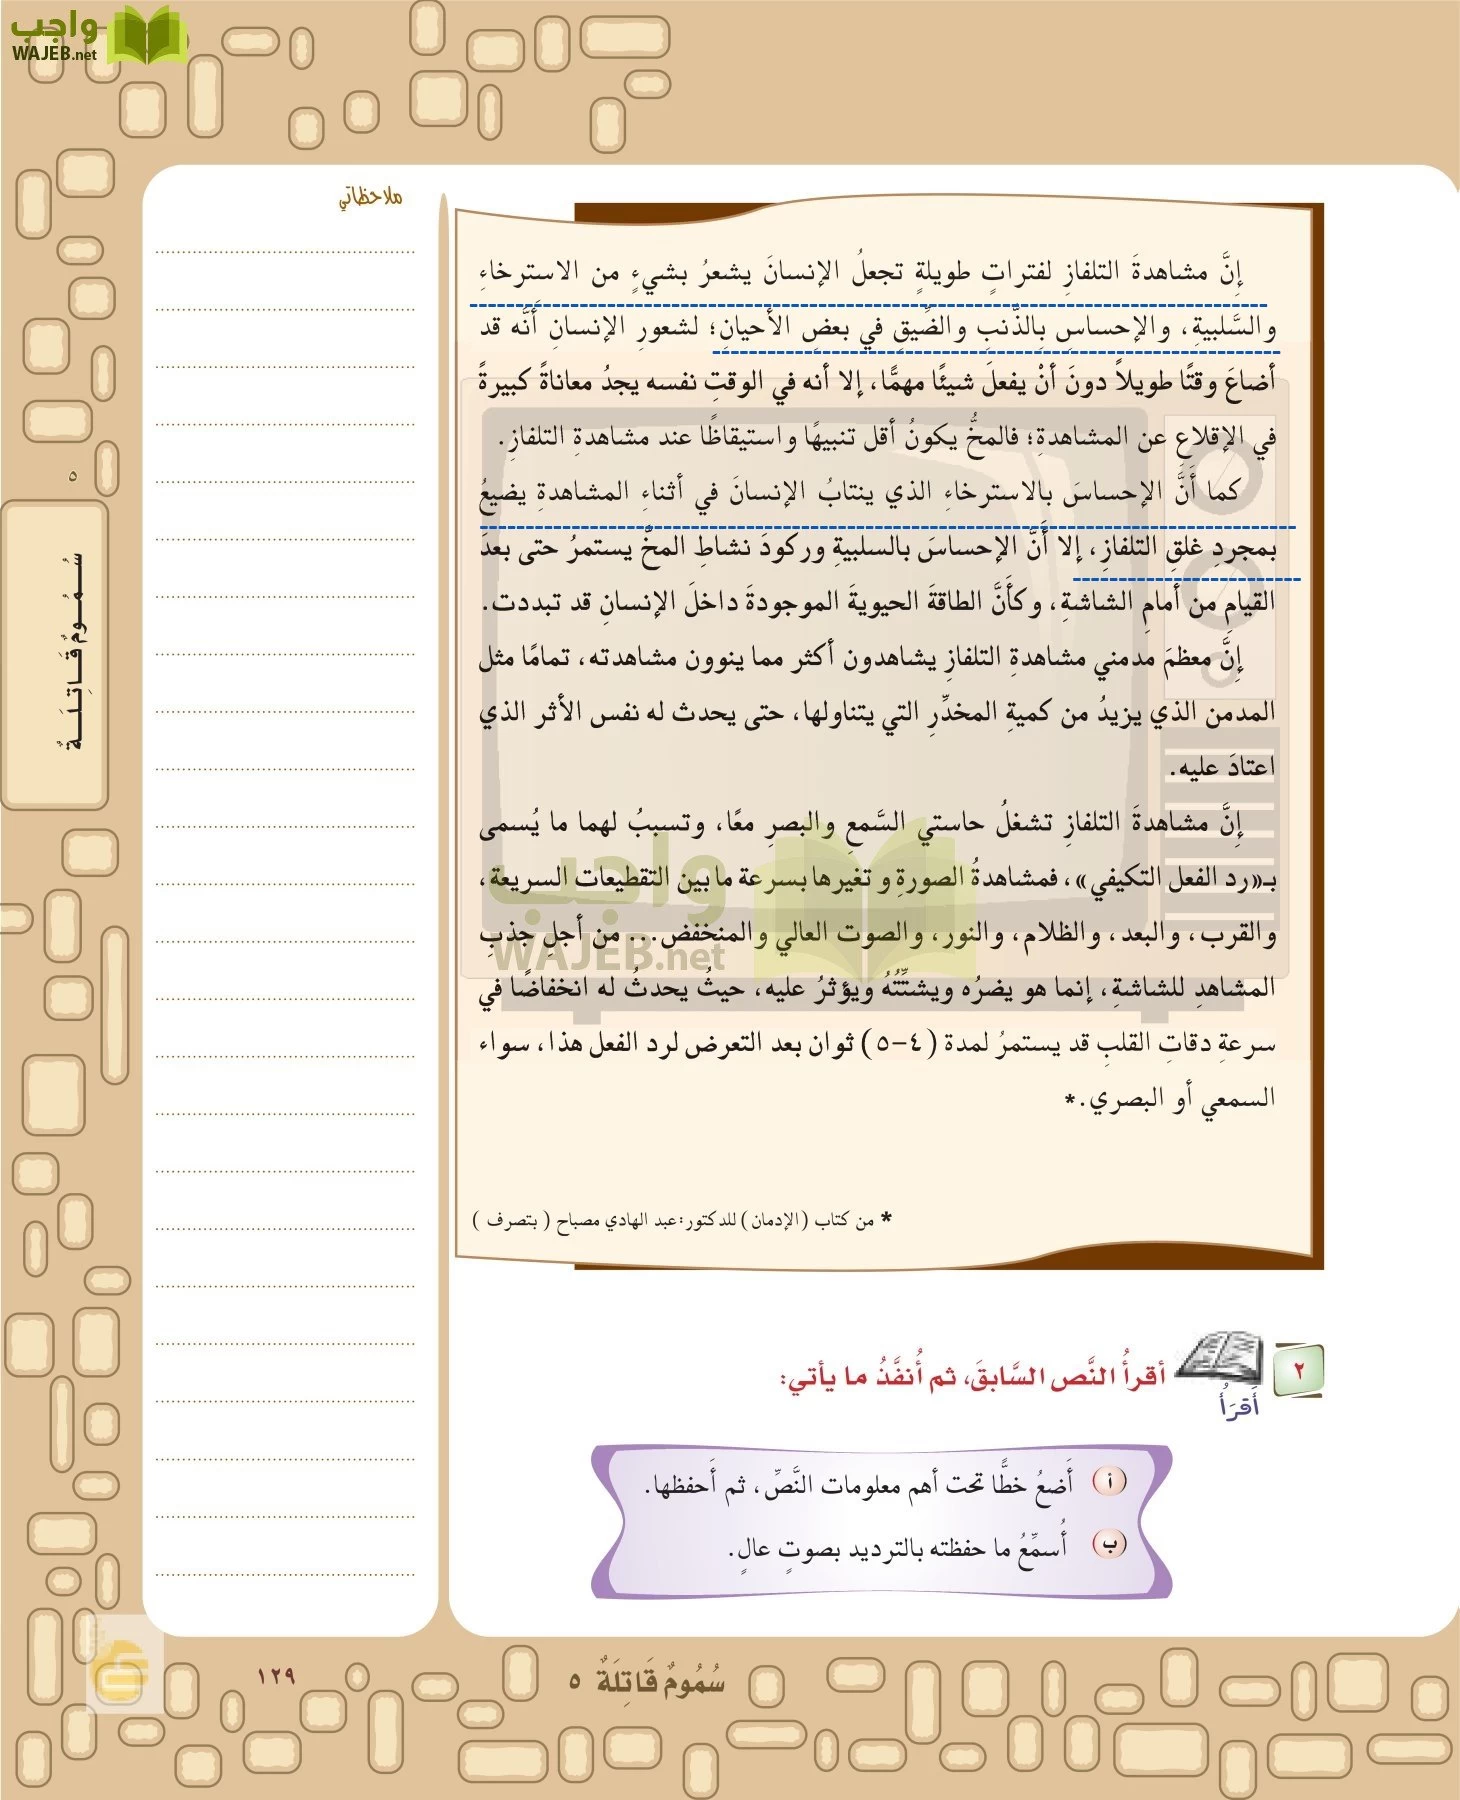 واجب
WAJEB.net
ملاحظاتي
إِنَّ مشاهدةَ التلفازِ لفتراتٍ طويلةٍ تجعلُ الإنسانَ يشعرُ بشيءٍ من الاسترخاءِ
والسَّلبيةِ، والإحساسِ بِالذَّنبِ والضِّيقِ في بعضِ الأحيانِ؛ لشعورِ الإنسانِ أَنَّه قد
أضاعَ وقتًا طويلاً دونَ أنْ يفعلَ شيئًا مهمًّا، إلا أنه في الوقتِ نفسه يجدُ معاناةً كبيرةً
في الإقلاعِ عن المشاهدةِ؛ فالمخُّ يكونُ أقل تنبيهًا واستيقاظًا عند مشاهدةِ التلفازِ.
كما أَنَّ الإحساسَ بالاسترخاءِ الذي ينتابُ الإنسانَ في أثناءِ المشاهدةِ يضيعُ
بمجردِ غلقِ التلفازِ، إلا أَنَّ الإحساسَ بالسلبيةِ وركودَ نشاطِ المخِّ يستمرُ حتى بعدَ
القيامِ من أمامِ الشاشةِ، وكأَنَّ الطاقةَ الحيويةَ الموجودةَ داخلَ الإنسانِ قد تبددت.
إِنَّ معظمَ مدمني مشاهدةِ التلفازِ يشاهدون أكثر مما ينوون مشاهدته، تمامًا مثل
المدمن الذي يزيدُ من كميةِ المخدِّرِ التي يتناولها، حتى يحدث له نفس الأثر الذي
اعتادَ عليه.
إِنَّ مشاهدةَ التلفازِ تشغلُ حاستي السَّمعِ والبصرِ معًا، وتسببُ لهما ما يُسمى
بـ«رد الفعل التكيفي»، فمشاهدةُ الصورةِ و تغيرها بسرعة ما بين التقطيعات السريعة،
والقرب، والبعد، والظلام، والنور، والصوت العالي والمنخفض... من أجلِ جذبِ
المشاهدِ للشاشةِ، إنما هو يضرُه ويشتِّتُهُ ويؤثرُ عليه، حيثُ يحدثُ له انخفاضًا في
سرعةِ دقاتِ القلبِ قد يستمرُ لمدة (٤-٥) ثوان بعد التعرض لرد الفعل هذا، سواء
السمعي أو البصري.*
* من كتاب (الإدمان) للدكتور: عبد الهادي مصباح (بتصرف)
واجب
WAJEB.net
٢
أَقرَأُ
أقرأُ النَّص السَّابقَ، ثم أُنفَّذُ ما يأتي:
أ أَضعُ خطًّا تحت أهم معلومات النَّصِّ، ثم أَحفظها.
ب أُسمِّعُ ما حفظته بالترديد بصوتٍ عالٍ.
٥
سُـمُـومٌ قَـاتِـلَـةٌ
سُمُومٌ قَاتِلَةٌ ٥
١٢٩